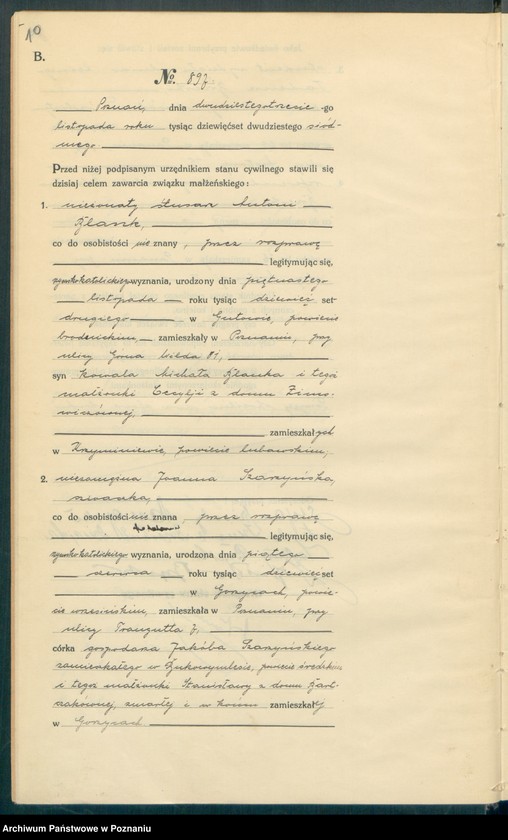 10
B.
No. 897
Poznań, dnia dwudziestegotrzecie -go
listopada roku tysiąc dziewięćset dwudziestego siód-
mego
Przed niżej podpisanym urzędnikiem stanu cywilnego stawili się
dzisiaj celem zawarcia związku małżeńskiego:
1. nieżonaty ślusarz Antoni
co do osobistości nie znany, przez rozprawę
legitymując się,
rzymskokatolickiego wyznania, urodzony dnia piętnastego
listopada roku tysiąc dziewięć set
drugiego w Gutowie, powiecie
brodnickim, zamieszkały w Poznaniu, przy
ulicy Górna Wilda 81,
syn kowala Michała i tegoż
małżonki Cecylji z domu
zamieszkałych
w powiecie lubawskim,
2. niezamężna Joanna Szarzyńska,
co do osobistości nie znana, przez rozprawę
legitymując się,
rzymskokatolickiego wyznania, urodzona dnia piątego
czerwca roku tysiąc dziewięćset
w Gorzycach, powie-
cie wrzesińskim, zamieszkała w Poznaniu, przy
ulicy Traugutta 7,
córka gospodarza Jakóba Szarzyńskiego
zamieszkałego w powiecie średzkim
i tegoż małżonki Stanisławy z domu
zmarłej i w końcu zamieszkałej
w Gorzycach
Archiwum Państwowe w Poznaniu